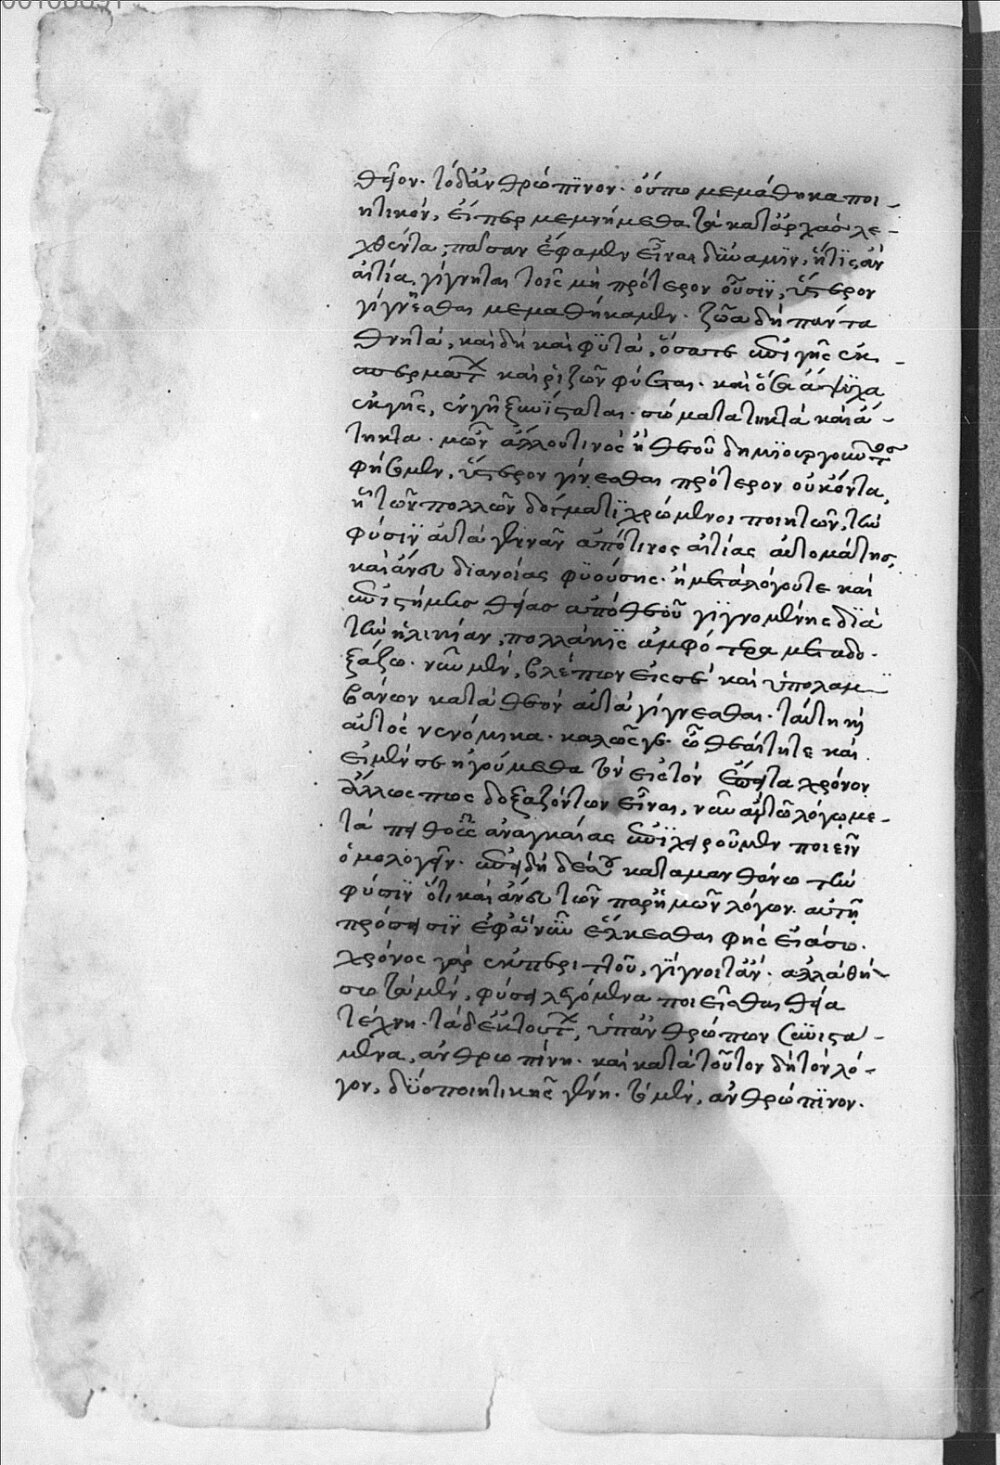 θεῖον· τὸ δ' ἀνθρώπϊνον· οὔπω μεμάθηκα ποι-
ητικὴν, εἴπερ μεμνήμεθα τὰ κατ' ἀρχὰς λε-
χθέντα, πᾶσαν ἔφαμεν εἶναι δΰναμϊν, ἥτϊς ἂν
αἰτία γίγνηται τοῖς μὴ πρότερον οὖσϊν, ὕστερον
γίγνεσθαι μεμαθήκαμεν· ζῶα δὴ πάντα
θνητὰ, καὶ δὴ καὶ φϋτὰ, ὅσα τε ἐπὶ γῆς ἐκ
σπερμάτων καὶ ῥιζῶν φύεται· καὶ ὅσα ἄψϋχα
ἐν γῆς, ἐν γῆ ξυνΐσταται· σώματα τηκτὰ καὶ ἄ-
τηκτα· μῶν ἄλλου τινὸς ἢ θεοῦ δημϊουργοῦντος
φήσομεν, ὕστερον γίνεσθαι πρότερον οὐκ ὄντα,
ἢ τῶν πολλῶν δόγματϊ χρώμενοι ποιητῶν, τὴν
φύσϊν αὐτὰ γεννᾶν ἀπό τινος αἰτίας αὐτομάτης,
καὶ ἄνευ δϊανοίας φϋούσης· ἢ μετὰ λόγου τε καὶ
ἐπιστήμης θείας ἀπὸ θεοῦ γϊγνομένης δϊὰ
τὴν ἡλικίαν, πολλάκϊς ἀμφότερα μεταδο-
ξάζω· νῦν μὴν, βλέπων εἰς σὲ καὶ ὑπολαμ-
βάνων κατὰ θεὸν αὐτὰ γίγνεσθαι· ταύτη καὶ
αὐτὸς νενόμικα· καλῶς γε· ὦ θεαίτητε καὶ
εἰ μέν σε ἡγούμεθα τὸν εἰς τὸν ἔπειτα χρόνον
ἄλλως πως δοξαζόντων εἶναι, νῦν ἂν τῶ λόγω με-
τὰ πειθοῦς ἀναγκαίας ἐπϊχειροῦμεν ποιεῖν
ὁμολογεῖν· ἐπειδὴ δέ σου καταμανθάνω τὴν
φύσϊν ὅτι καὶ ἄνευ τῶν παρ' ἡμῶν λόγων αὐτὴ
πρόσεισϊν ἐφ' ἃ νῦν ἕλκεσθαι φῂς ἐάσω·
χρόνος γὰρ ἐκ περιττοῦ, γίγνοιτ' ἄν· ἀλλὰ θή-
σω τὰ μὲν, φύσει λεγόμενα ποιεῖσθαι θεία
τέχνη· τὰ δ' ἐκ τούτων, ὑπ' ἀνθρώπων ξυνιστα-
μενα, ἀνθρωπίνη· καὶ κατὰ τοῦτον δὴ τὸν λό-
γον, δΰο ποιητικῆς γένη· τὸ μὲν, ἀνθρώπϊνον·